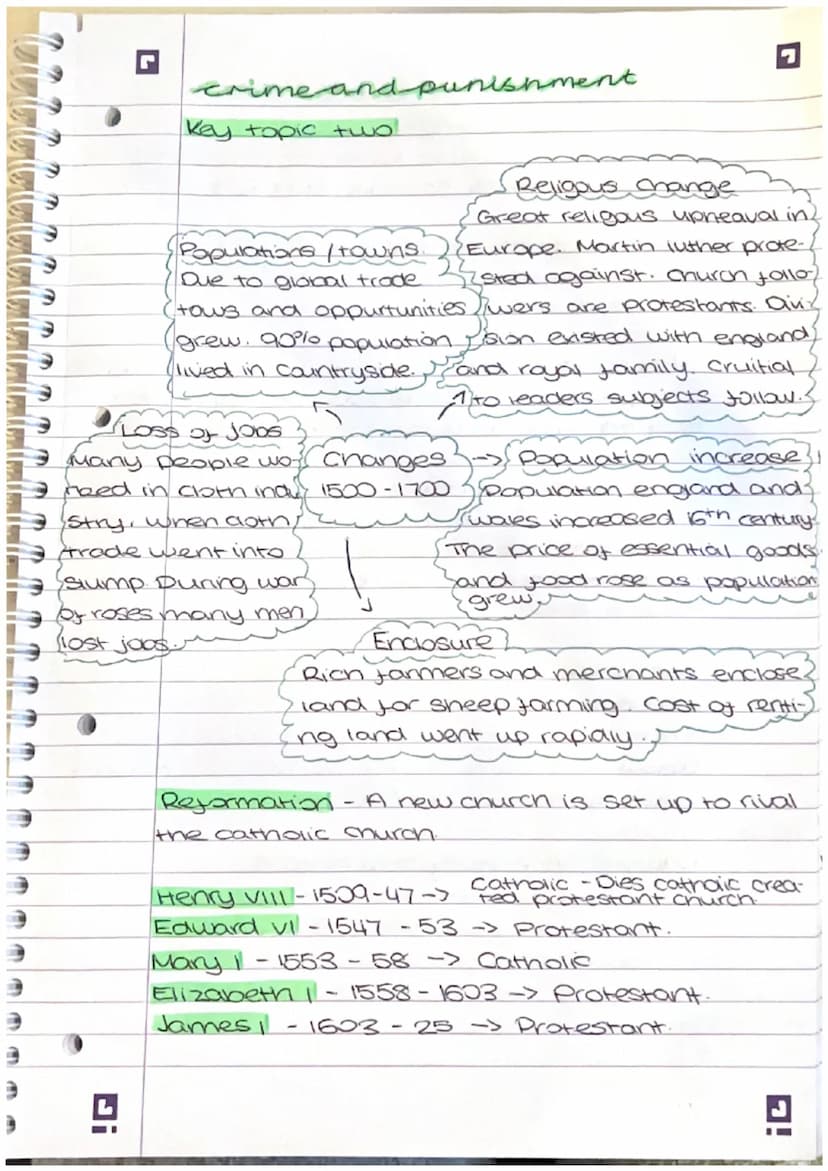 crime and punishment
Key topic two
Religous Change
Great religous upheaval in
Europe. Martin luther prote-
sted against. Church follo-
wers are protestants. Divi-
sion existed with england
and royal family. Cruitial
to leaders subjects follow.
Populations / towns.
Due to global trade
tows and oppurtunities
grew. 90% population
lived in countryside.
Loss of Jobs
Many people wo
rked in cloth indu
stry, when cloth
trade went into
slump. During war
of roses many men
lost jobs.
Changes
1500-1700
Population increase
Population england and
wales increased 16th century
The price of essential goods
and food rose as population
grew.
Enclosure
Rich farmers and merchants enclose
land for sheep farming. Cost of renti-
ng land went up rapidly.
Reformation - A new church is set up to rival
the catholic church.
Henry VIII - 1509-47 -> Catholic - Dies catholic crea-
ted protestant church
Edward VI - 1547 - 53 -> Protestant.
Mary I - 1553 - 58 -> Catholic
Elizabeth I - 1558 - 1603 -> Protestant.
James I - 1603 - 25 -> Protestant.